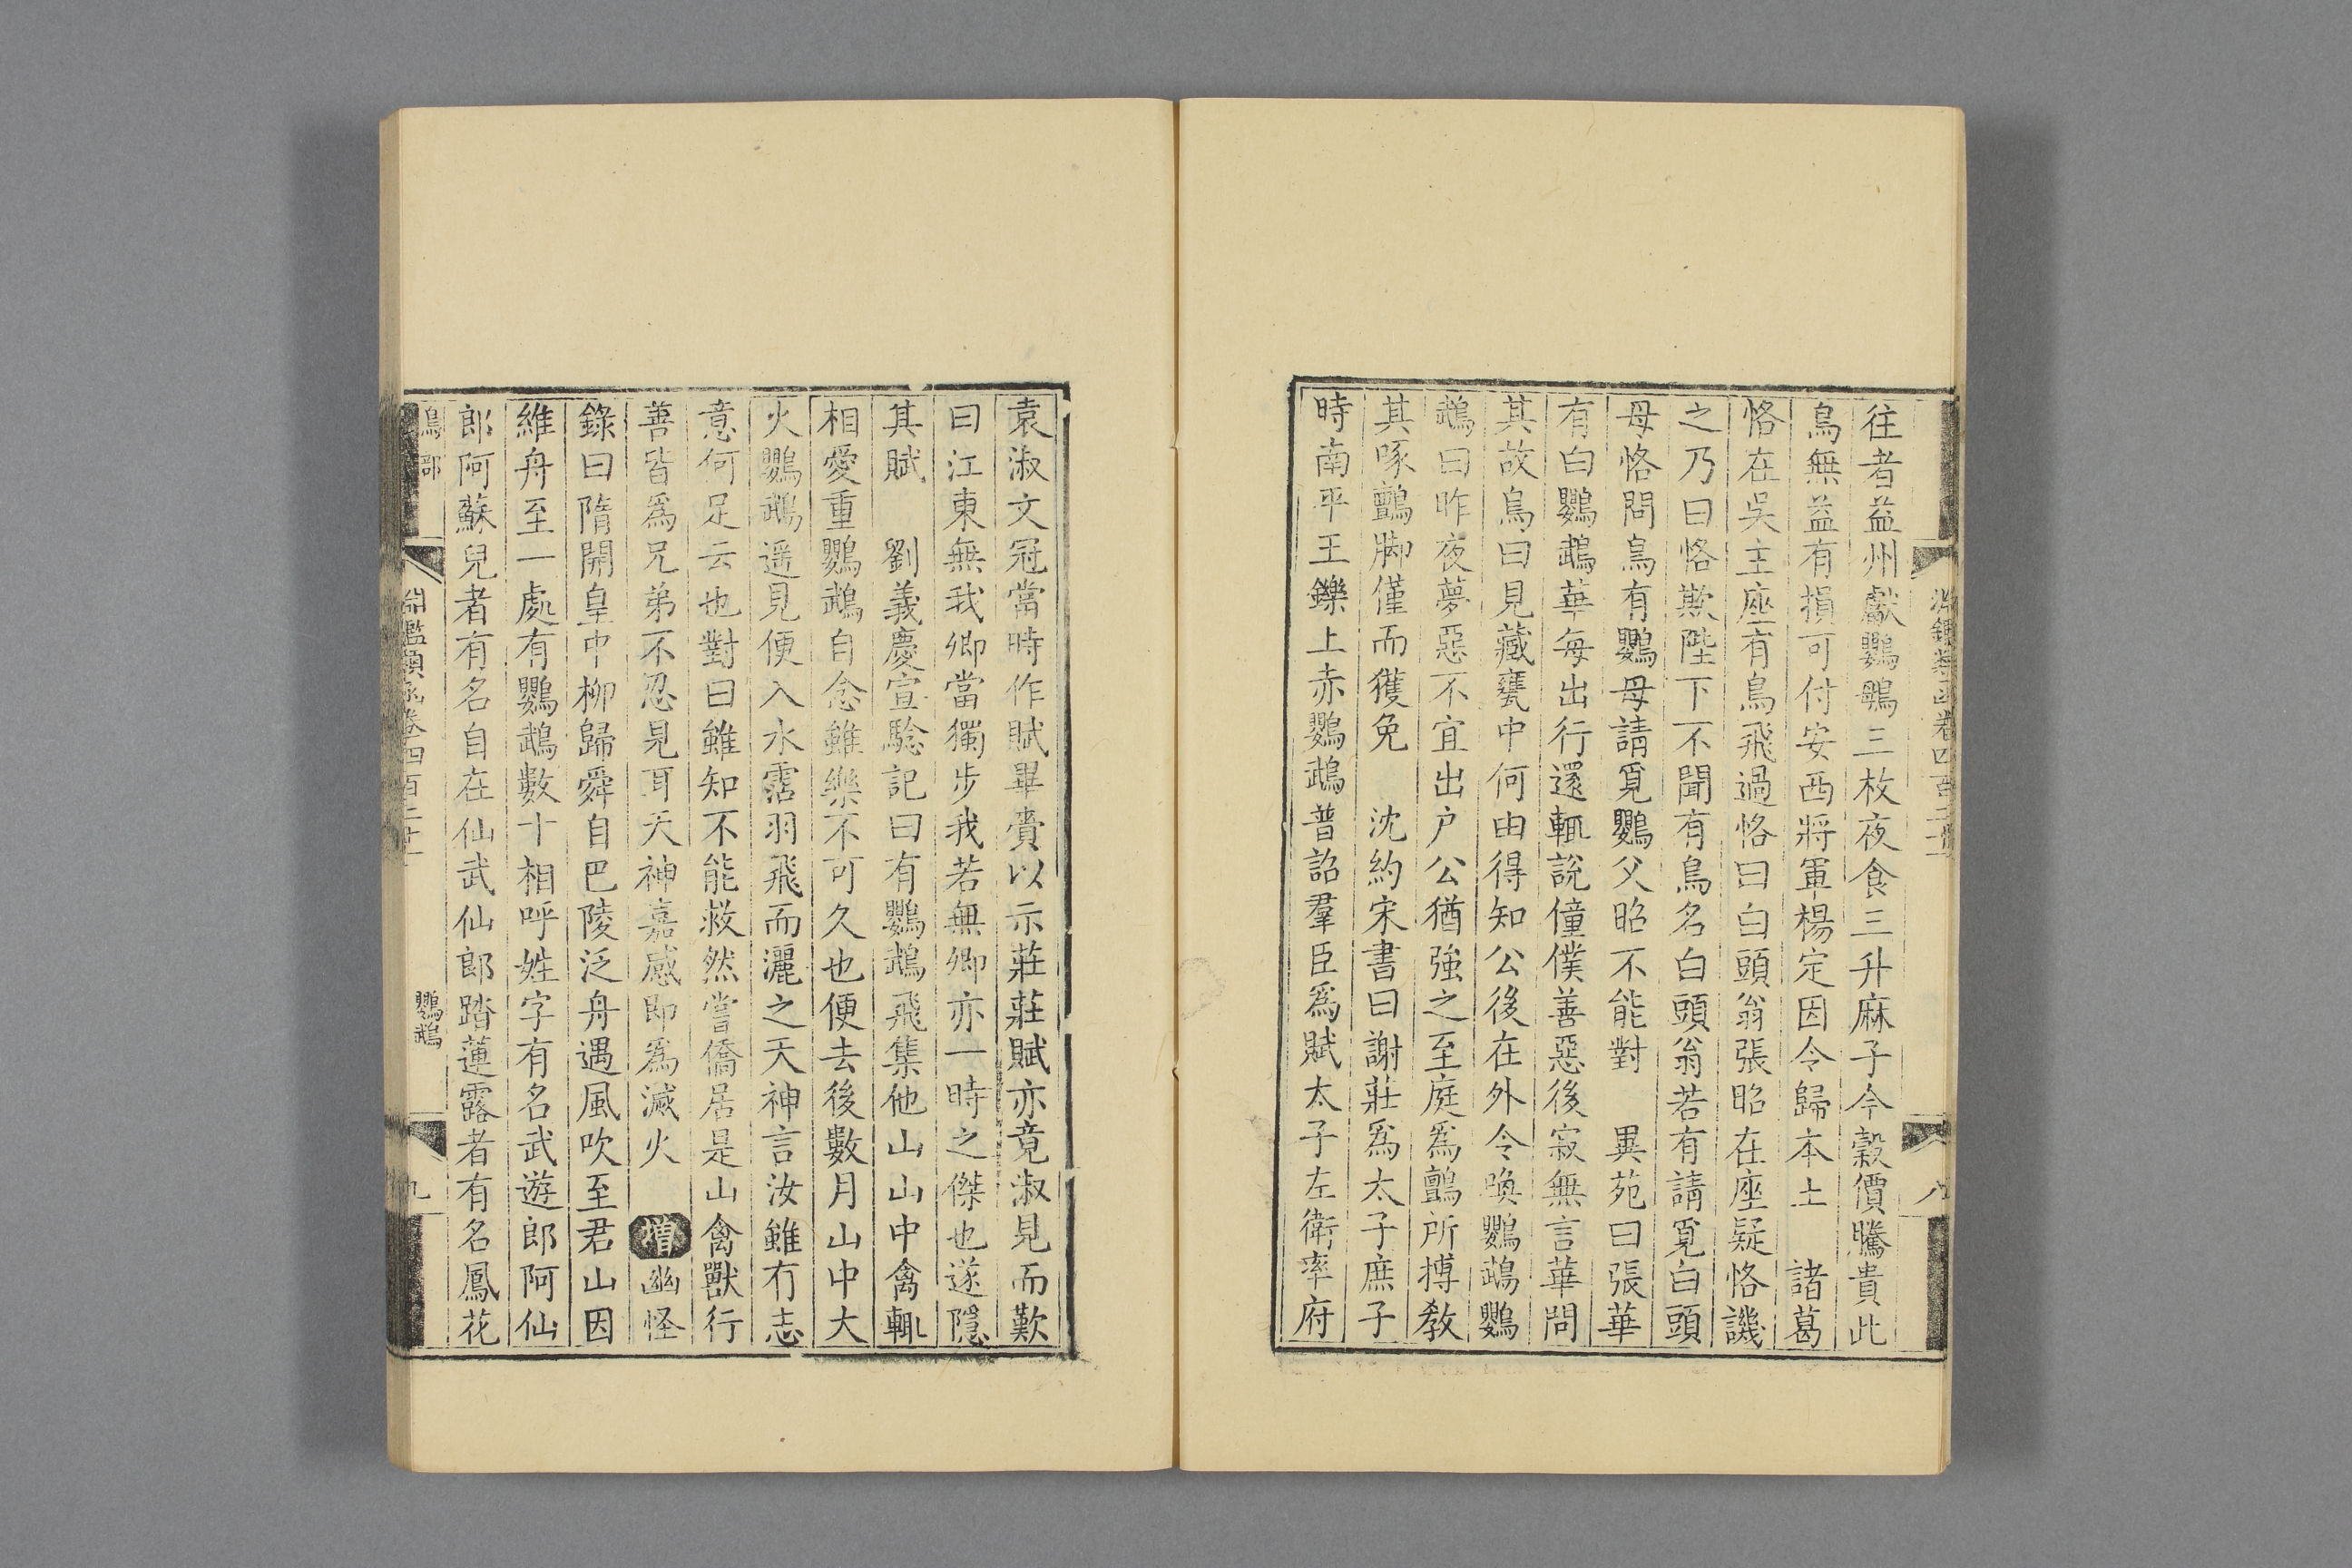 往者益州獻鸚鵡三枚夜食三升麻子今穀價騰貴此
鳥無益有損可付安西將軍楊定因令歸本土　諸葛
恪在吳主座有鳥飛過恪曰白頭翁張昭在座疑恪譏
之乃曰恪欺陛下不聞有鳥名白頭翁若有請覓白頭
母恪問鳥有鸚母請覓鸚父昭不能對　異苑曰張華
有白鸚鵡華每出行還輒說僮僕善惡後寂無言華問
其故鳥曰見藏甕中何由得知公後在外令喚鸚鵡鸚
鵡曰昨夜夢惡不宜出户公猶強之至庭爲鸇所搏教
其啄鸇脚僅而獲免　沈約宋書曰謝莊爲太子庶子
時南平王鑠上赤鸚鵡普詔羣臣爲賦太子左衛率府
袁淑文冠當時作賦畢賷以示莊莊賦亦竟淑見而歎
曰江東無我卿當獨步我若無卿亦一時之傑也遂隱
其賦　劉義慶宣騐記曰有鸚鵡飛集他山山中禽輒
相愛重鸚鵡自念雖樂不可久也便去後數月山中大
火鸚鵡遥見便入水霑羽飛而灑之天神言汝雖有志
意何足云也對曰雖知不能救然嘗僑居是山禽獸行
善皆爲兄弟不忍見耳天神嘉感即爲滅火　增幽怪
錄曰隋開皇中柳歸舜自巴陵泛舟遇風吹至君山因
維舟至一處有鸚鵡數十相呼姓字有名武遊郎阿仙
郎阿蘇兒者有名自在仙武仙郎踏蓮露者有名鳳花
鳥部
淵鑑類函卷四百二十一
鸚鵡
九